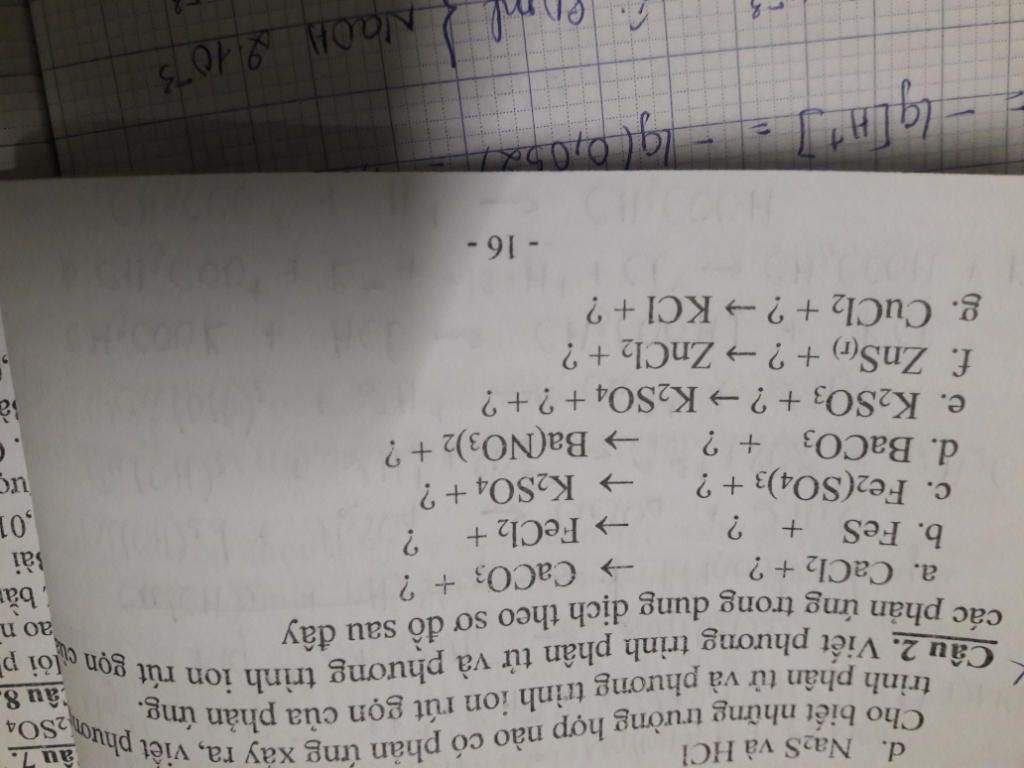 d. Na₂S và HCl
Cho biết những trường hợp nào có phản ứng xảy ra, viết phương
trình phân tử và phương trình ion rút gọn của phản ứng.
Câu 2. Viết phương trình phân tử và phương trình ion rút gọn của
các phản ứng trong dung dịch theo sơ đồ sau đây
a. CaCl₂ + ? → CaCO₃ + ?
b. FeS + ? → FeCl₂ + ?
c. Fe₂(SO₄)₃ + ? → K₂SO₄ + ?
d. BaCO₃ + ? → Ba(NO₃)₂ + ?
e. K₂SO₃ + ? → K₂SO₄ + ? + ?
f. ZnS(r) + ? → ZnCl₂ + ?
g. CuCl₂ + ? → KCl + ?
- 16 -
- lg[H⁺] = - lg(0,052)
NaOH 2.10⁻³
âu 7.
₂SO₄
âu 8.
lõi